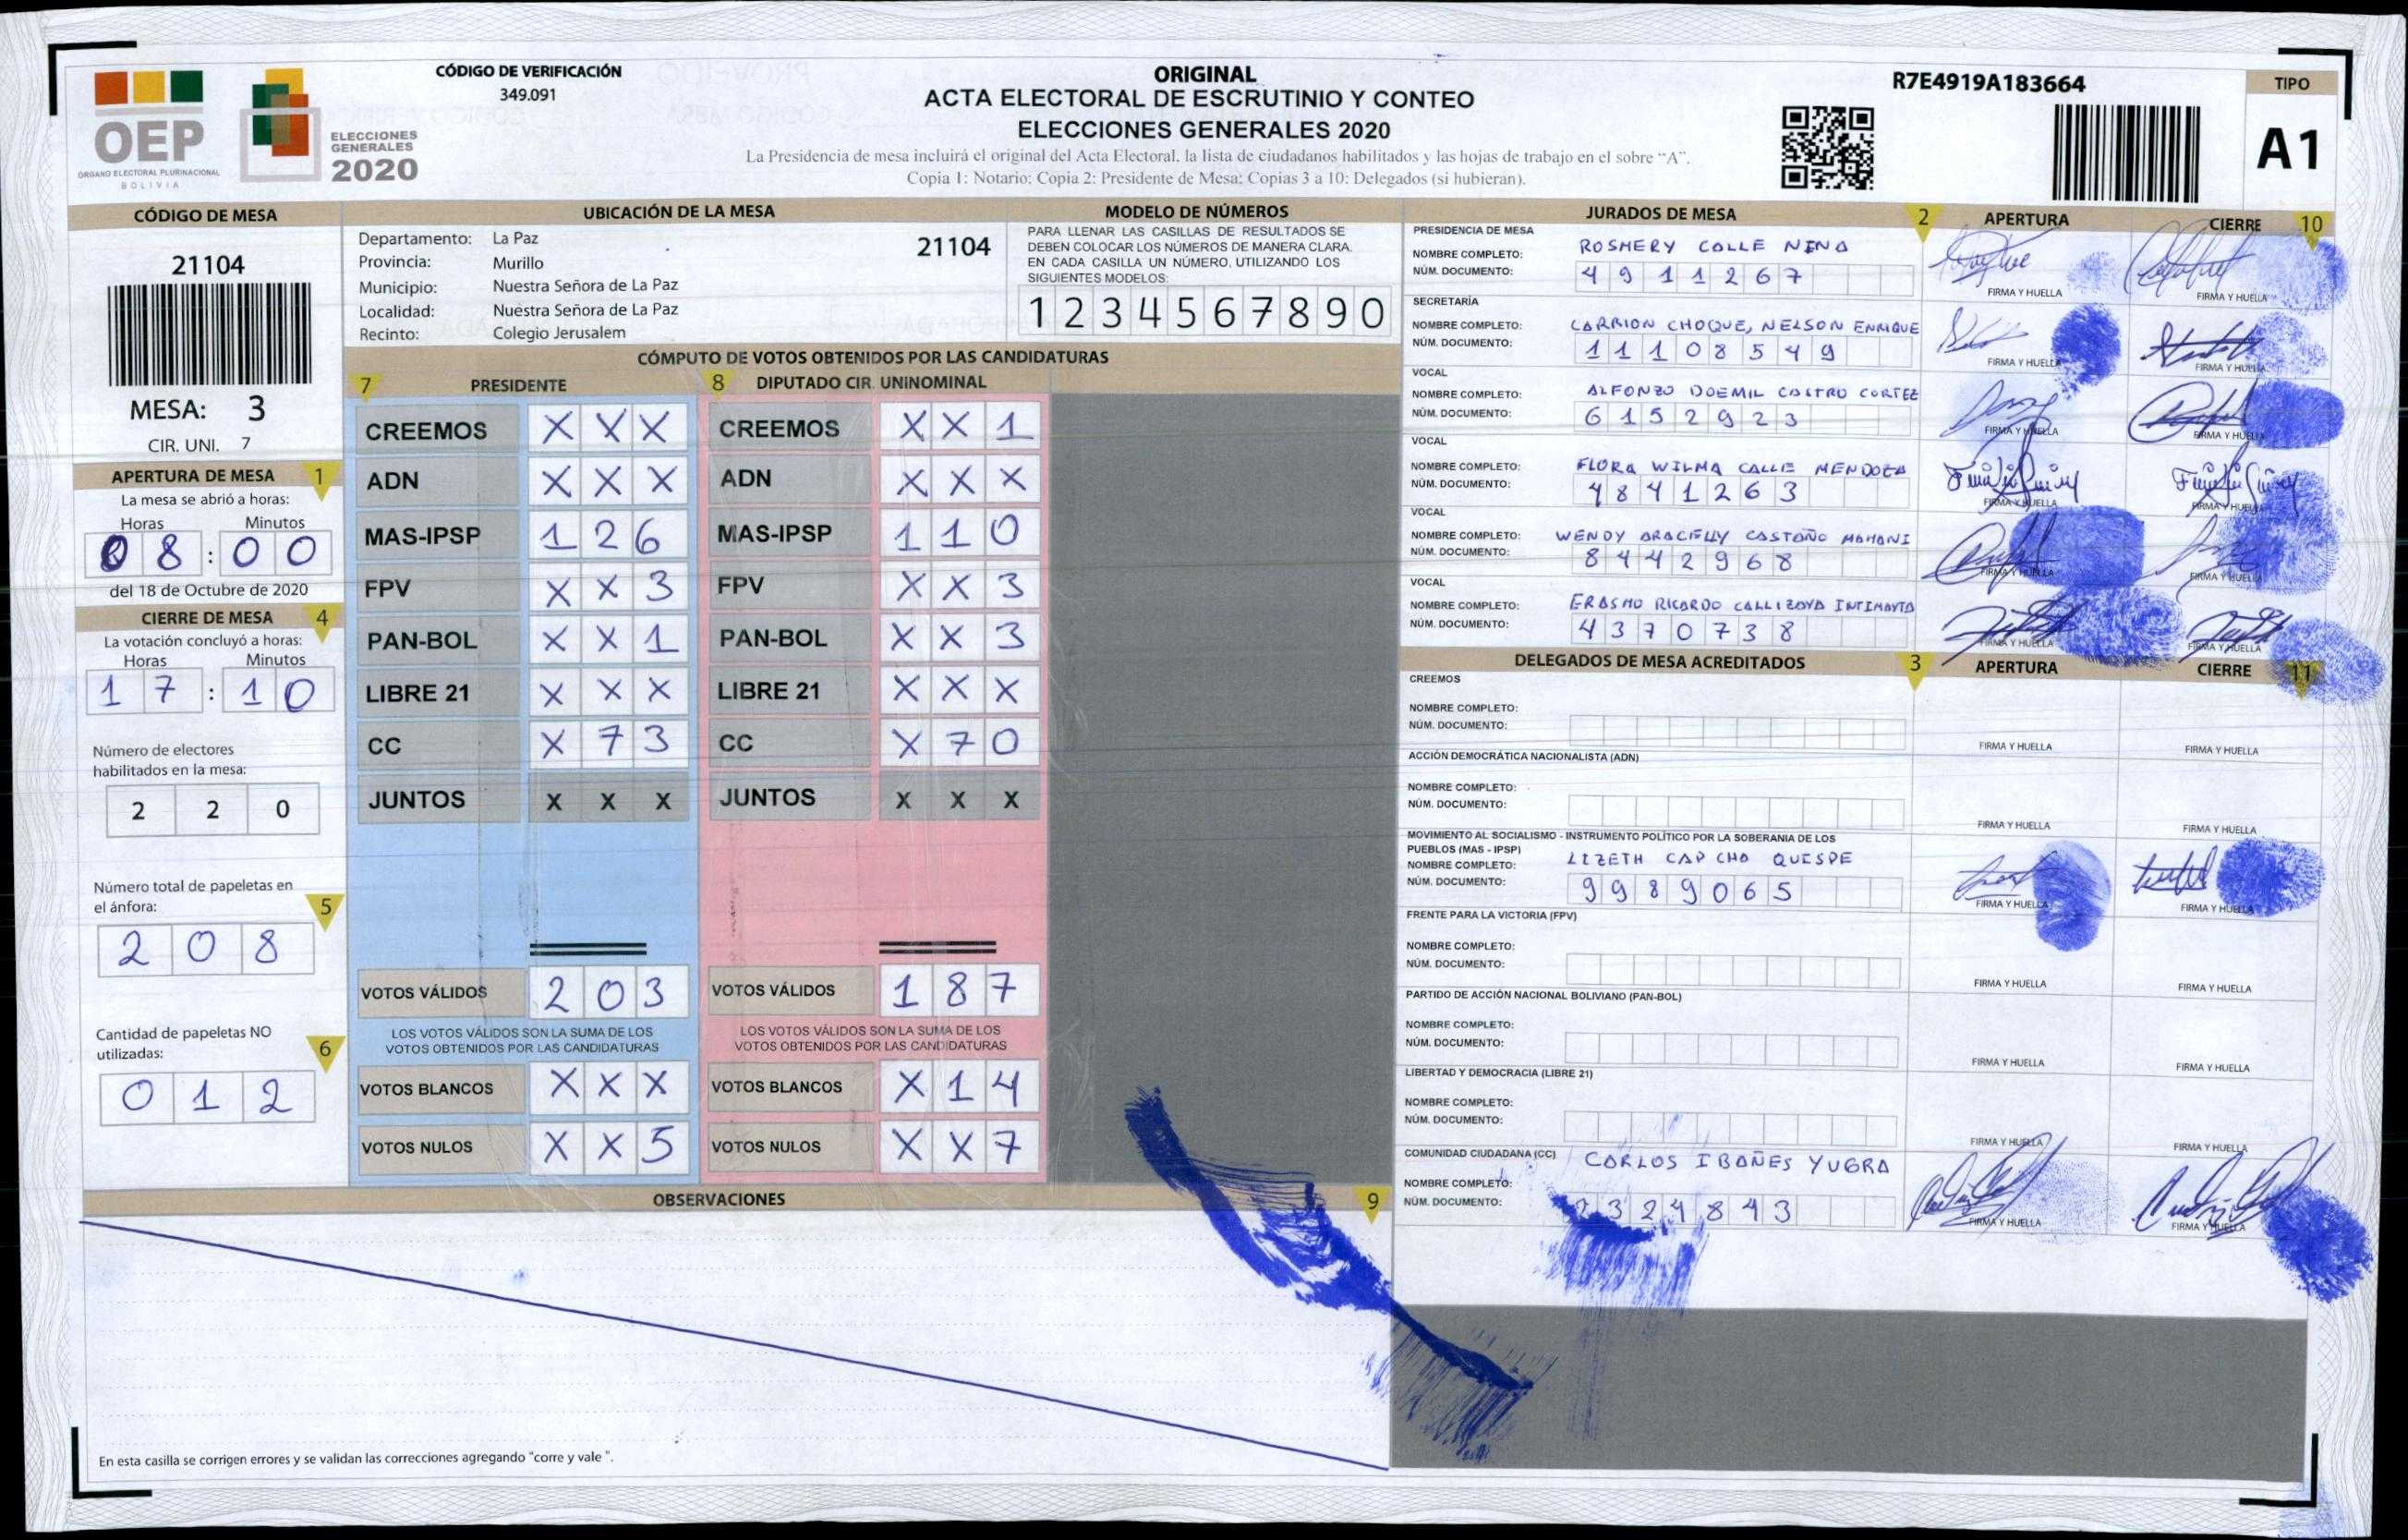 OEP
ÓRGANO ELECTORAL PLURINACIONAL
BOLIVIA
ELECCIONES
GENERALES
2020
CÓDIGO DE VERIFICACIÓN
349.091
ORIGINAL
ACTA ELECTORAL DE ESCRUTINIO Y CONTEO
ELECCIONES GENERALES 2020
La Presidencia de mesa incluirá el original del Acta Electoral, la lista de ciudadanos habilitados y las hojas de trabajo en el sobre "A".
Copia 1: Notario; Copia 2: Presidente de Mesa; Copias 3 a 10: Delegados (si hubieran).
R7E4919A183664
TIPO
A1
CÓDIGO DE MESA
21104
MESA: 3
CIR. UNI. 7
APERTURA DE MESA 1
La mesa se abrió a horas:
Horas Minutos
0 8 : 0 0
del 18 de Octubre de 2020
CIERRE DE MESA 4
La votación concluyó a horas:
Horas Minutos
1 7 : 1 0
Número de electores
habilitados en la mesa:
2 2 0
Número total de papeletas en
el ánfora: 5
2 0 8
Cantidad de papeletas NO
utilizadas: 6
0 1 2
UBICACIÓN DE LA MESA
Departamento: La Paz 21104
Provincia: Murillo
Municipio: Nuestra Señora de La Paz
Localidad: Nuestra Señora de La Paz
Recinto: Colegio Jerusalem
MODELO DE NÚMEROS
PARA LLENAR LAS CASILLAS DE RESULTADOS SE
DEBEN COLOCAR LOS NÚMEROS DE MANERA CLARA.
EN CADA CASILLA UN NÚMERO, UTILIZANDO LOS
SIGUIENTES MODELOS:
1 2 3 4 5 6 7 8 9 0
CÓMPUTO DE VOTOS OBTENIDOS POR LAS CANDIDATURAS
7 PRESIDENTE
CREEMOS X X X
ADN X X X
MAS-IPSP 1 2 6
FPV X X 3
PAN-BOL X X 1
LIBRE 21 X X X
CC X 7 3
JUNTOS X X X
VOTOS VÁLIDOS 2 0 3
LOS VOTOS VÁLIDOS SON LA SUMA DE LOS
VOTOS OBTENIDOS POR LAS CANDIDATURAS
VOTOS BLANCOS X X X
VOTOS NULOS X X 5
8 DIPUTADO CIR. UNINOMINAL
CREEMOS X X 1
ADN X X X
MAS-IPSP 1 1 0
FPV X X 3
PAN-BOL X X 3
LIBRE 21 X X X
CC X 7 0
JUNTOS X X X
VOTOS VÁLIDOS 1 8 7
LOS VOTOS VÁLIDOS SON LA SUMA DE LOS
VOTOS OBTENIDOS POR LAS CANDIDATURAS
VOTOS BLANCOS X 1 4
VOTOS NULOS X X 7
OBSERVACIONES 9
En esta casilla se corrigen errores y se validan las correcciones agregando "corre y vale ".
JURADOS DE MESA 2 APERTURA CIERRE 10
PRESIDENCIA DE MESA
NOMBRE COMPLETO: ROSMERY CALLE NINA
NÚM. DOCUMENTO: 4 9 1 1 2 6 7
FIRMA Y HUELLA FIRMA Y HUELLA
SECRETARÍA
NOMBRE COMPLETO: CARRION CHOQUE, NELSON ENRIQUE
NÚM. DOCUMENTO: 1 1 1 0 8 5 4 9
FIRMA Y HUELLA FIRMA Y HUELLA
VOCAL
NOMBRE COMPLETO: ALFONZO DOEMIL CASTRO CORTEZ
NÚM. DOCUMENTO: 6 1 5 2 9 2 3
FIRMA Y HUELLA FIRMA Y HUELLA
VOCAL
NOMBRE COMPLETO: FLORA WILMA CALLE MENDOZA
NÚM. DOCUMENTO: 4 8 4 1 2 6 3
FIRMA Y HUELLA FIRMA Y HUELLA
VOCAL
NOMBRE COMPLETO: WENDY ARACELLY CASTAÑO MAMANI
NÚM. DOCUMENTO: 8 4 4 2 9 6 8
FIRMA Y HUELLA FIRMA Y HUELLA
VOCAL
NOMBRE COMPLETO: ERASMO RICARDO CALLIZAYA INTIMAYTA
NÚM. DOCUMENTO: 4 3 7 0 7 3 8
FIRMA Y HUELLA FIRMA Y HUELLA
DELEGADOS DE MESA ACREDITADOS 3 APERTURA CIERRE 11
CREEMOS
NOMBRE COMPLETO:
NÚM. DOCUMENTO:
FIRMA Y HUELLA FIRMA Y HUELLA
ACCIÓN DEMOCRÁTICA NACIONALISTA (ADN)
NOMBRE COMPLETO:
NÚM. DOCUMENTO:
FIRMA Y HUELLA FIRMA Y HUELLA
MOVIMIENTO AL SOCIALISMO - INSTRUMENTO POLÍTICO POR LA SOBERANIA DE LOS
PUEBLOS (MAS - IPSP)
NOMBRE COMPLETO: LIZETH CAPCHA QUISPE
NÚM. DOCUMENTO: 9 9 8 9 0 6 5
FIRMA Y HUELLA FIRMA Y HUELLA
FRENTE PARA LA VICTORIA (FPV)
NOMBRE COMPLETO:
NÚM. DOCUMENTO:
FIRMA Y HUELLA FIRMA Y HUELLA
PARTIDO DE ACCIÓN NACIONAL BOLIVIANO (PAN-BOL)
NOMBRE COMPLETO:
NÚM. DOCUMENTO:
FIRMA Y HUELLA FIRMA Y HUELLA
LIBERTAD Y DEMOCRACIA (LIBRE 21)
NOMBRE COMPLETO:
NÚM. DOCUMENTO:
FIRMA Y HUELLA FIRMA Y HUELLA
COMUNIDAD CIUDADANA (CC)
NOMBRE COMPLETO: CARLOS IBAÑES YUGRA
NÚM. DOCUMENTO: 3 2 4 8 4 3
FIRMA Y HUELLA FIRMA Y HUELLA